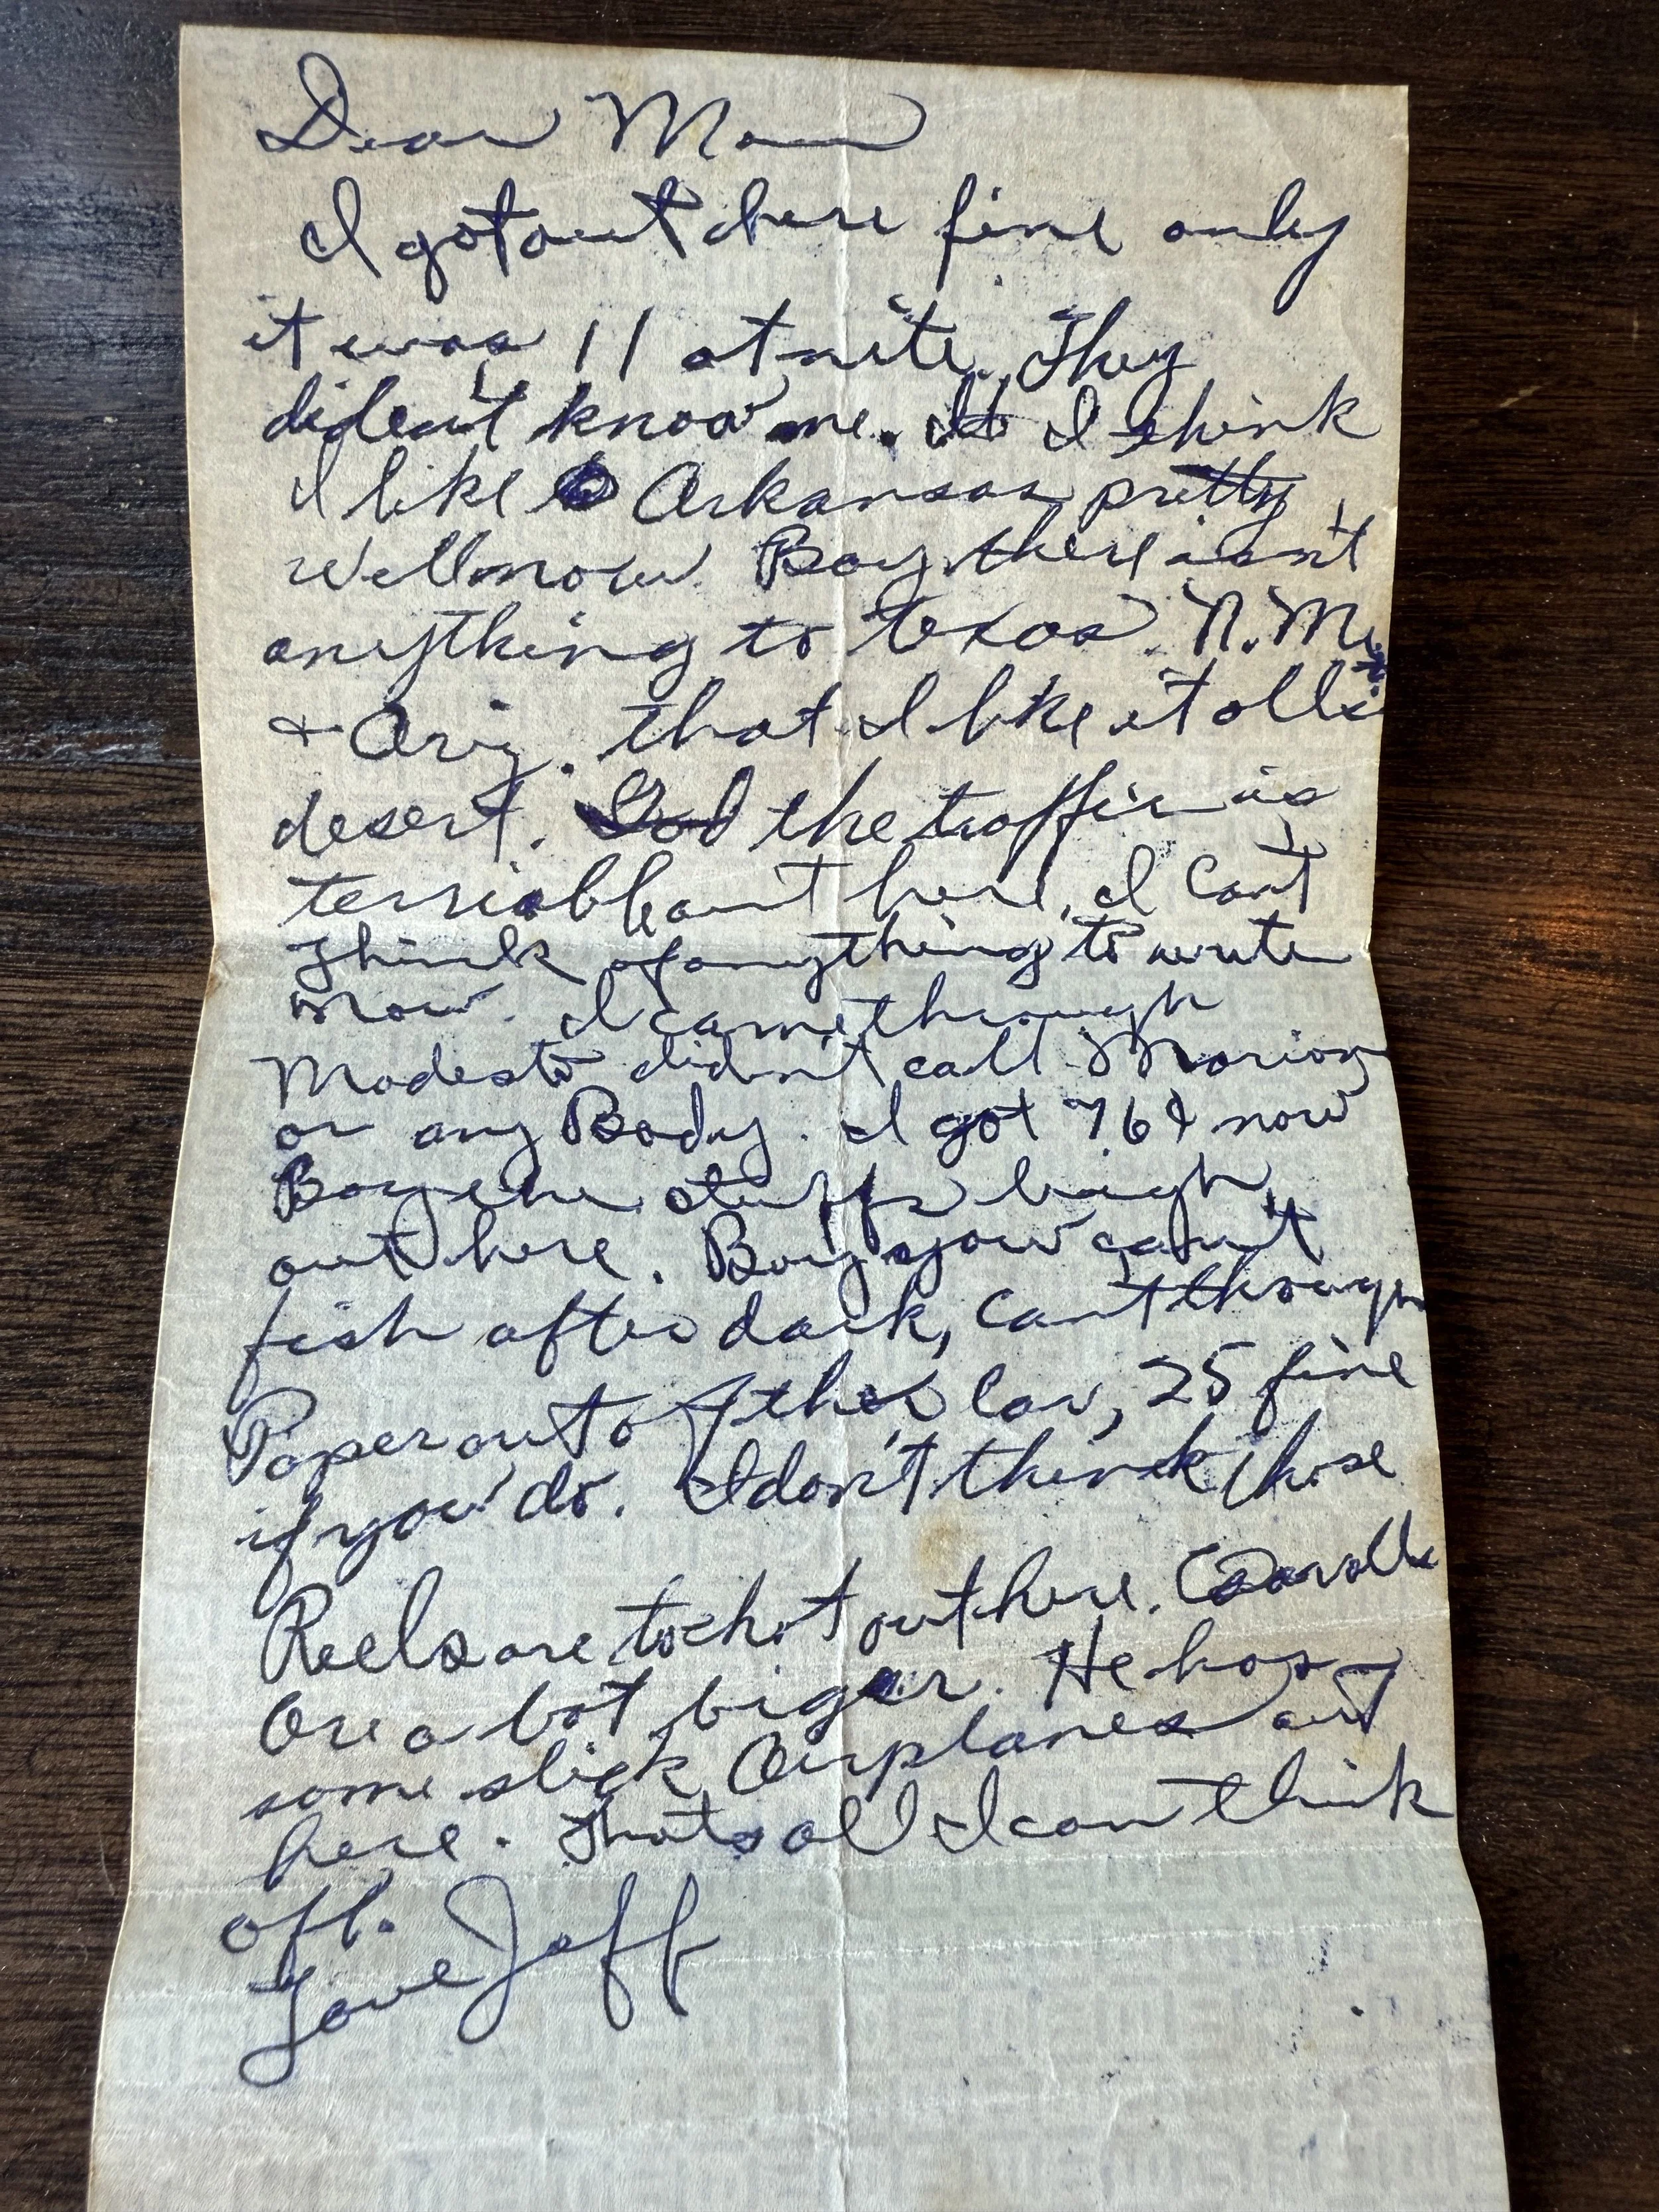 Dear Mom
I got out here fine only
it was 11 at nite. They
dident know me. I think
I like Arkansas pretty
well now. Boy there isn't
anything to Texas. N.M.
+ Ariz. that I like it alls
desert. God the traffic is
terriable out here, I Can't
Think of anything to write
now. I came through
Modesto didn't call Marion
or any Body. I got 76¢ now
Boy the stuffs high
out here. Boy you can't
fish after dark, Can't through
Paper out of the Car, 25 fine
if you do. I don't think those
Reels are to hot out here.
are a lot biger. He has
some slick Airplanes out
here. Thats all I can think
off.
Love Jeff